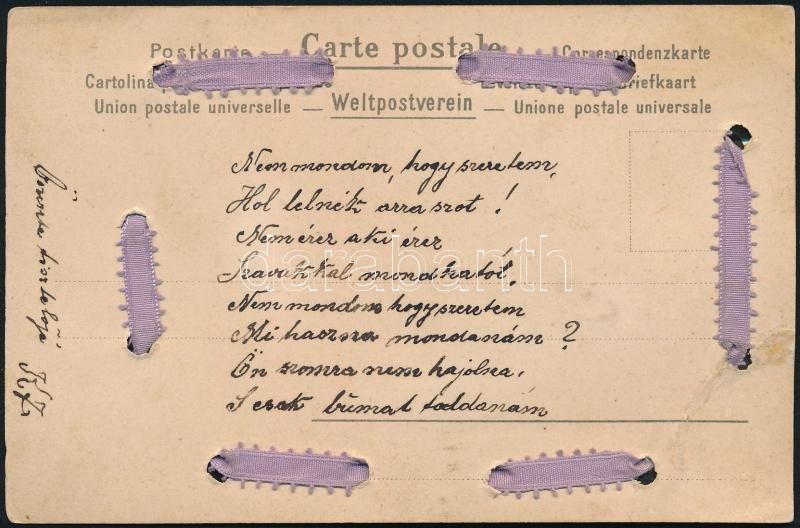 Postkarte — Carte postale — Correspondenzkarte
Cartolina Briefkaart
Union postale universelle — Weltpostverein — Unione postale universale
Nem mondom, hogy szeretem,
Hol lelnék arra szot!
Nem érez aki érez
Szavakkal mondhatót!
Nem mondom hogy szeretem
Mi haszna mondanám?
Ön szomra nem hajolna.
S csak búmat toldanám
tisztelője
darabanth